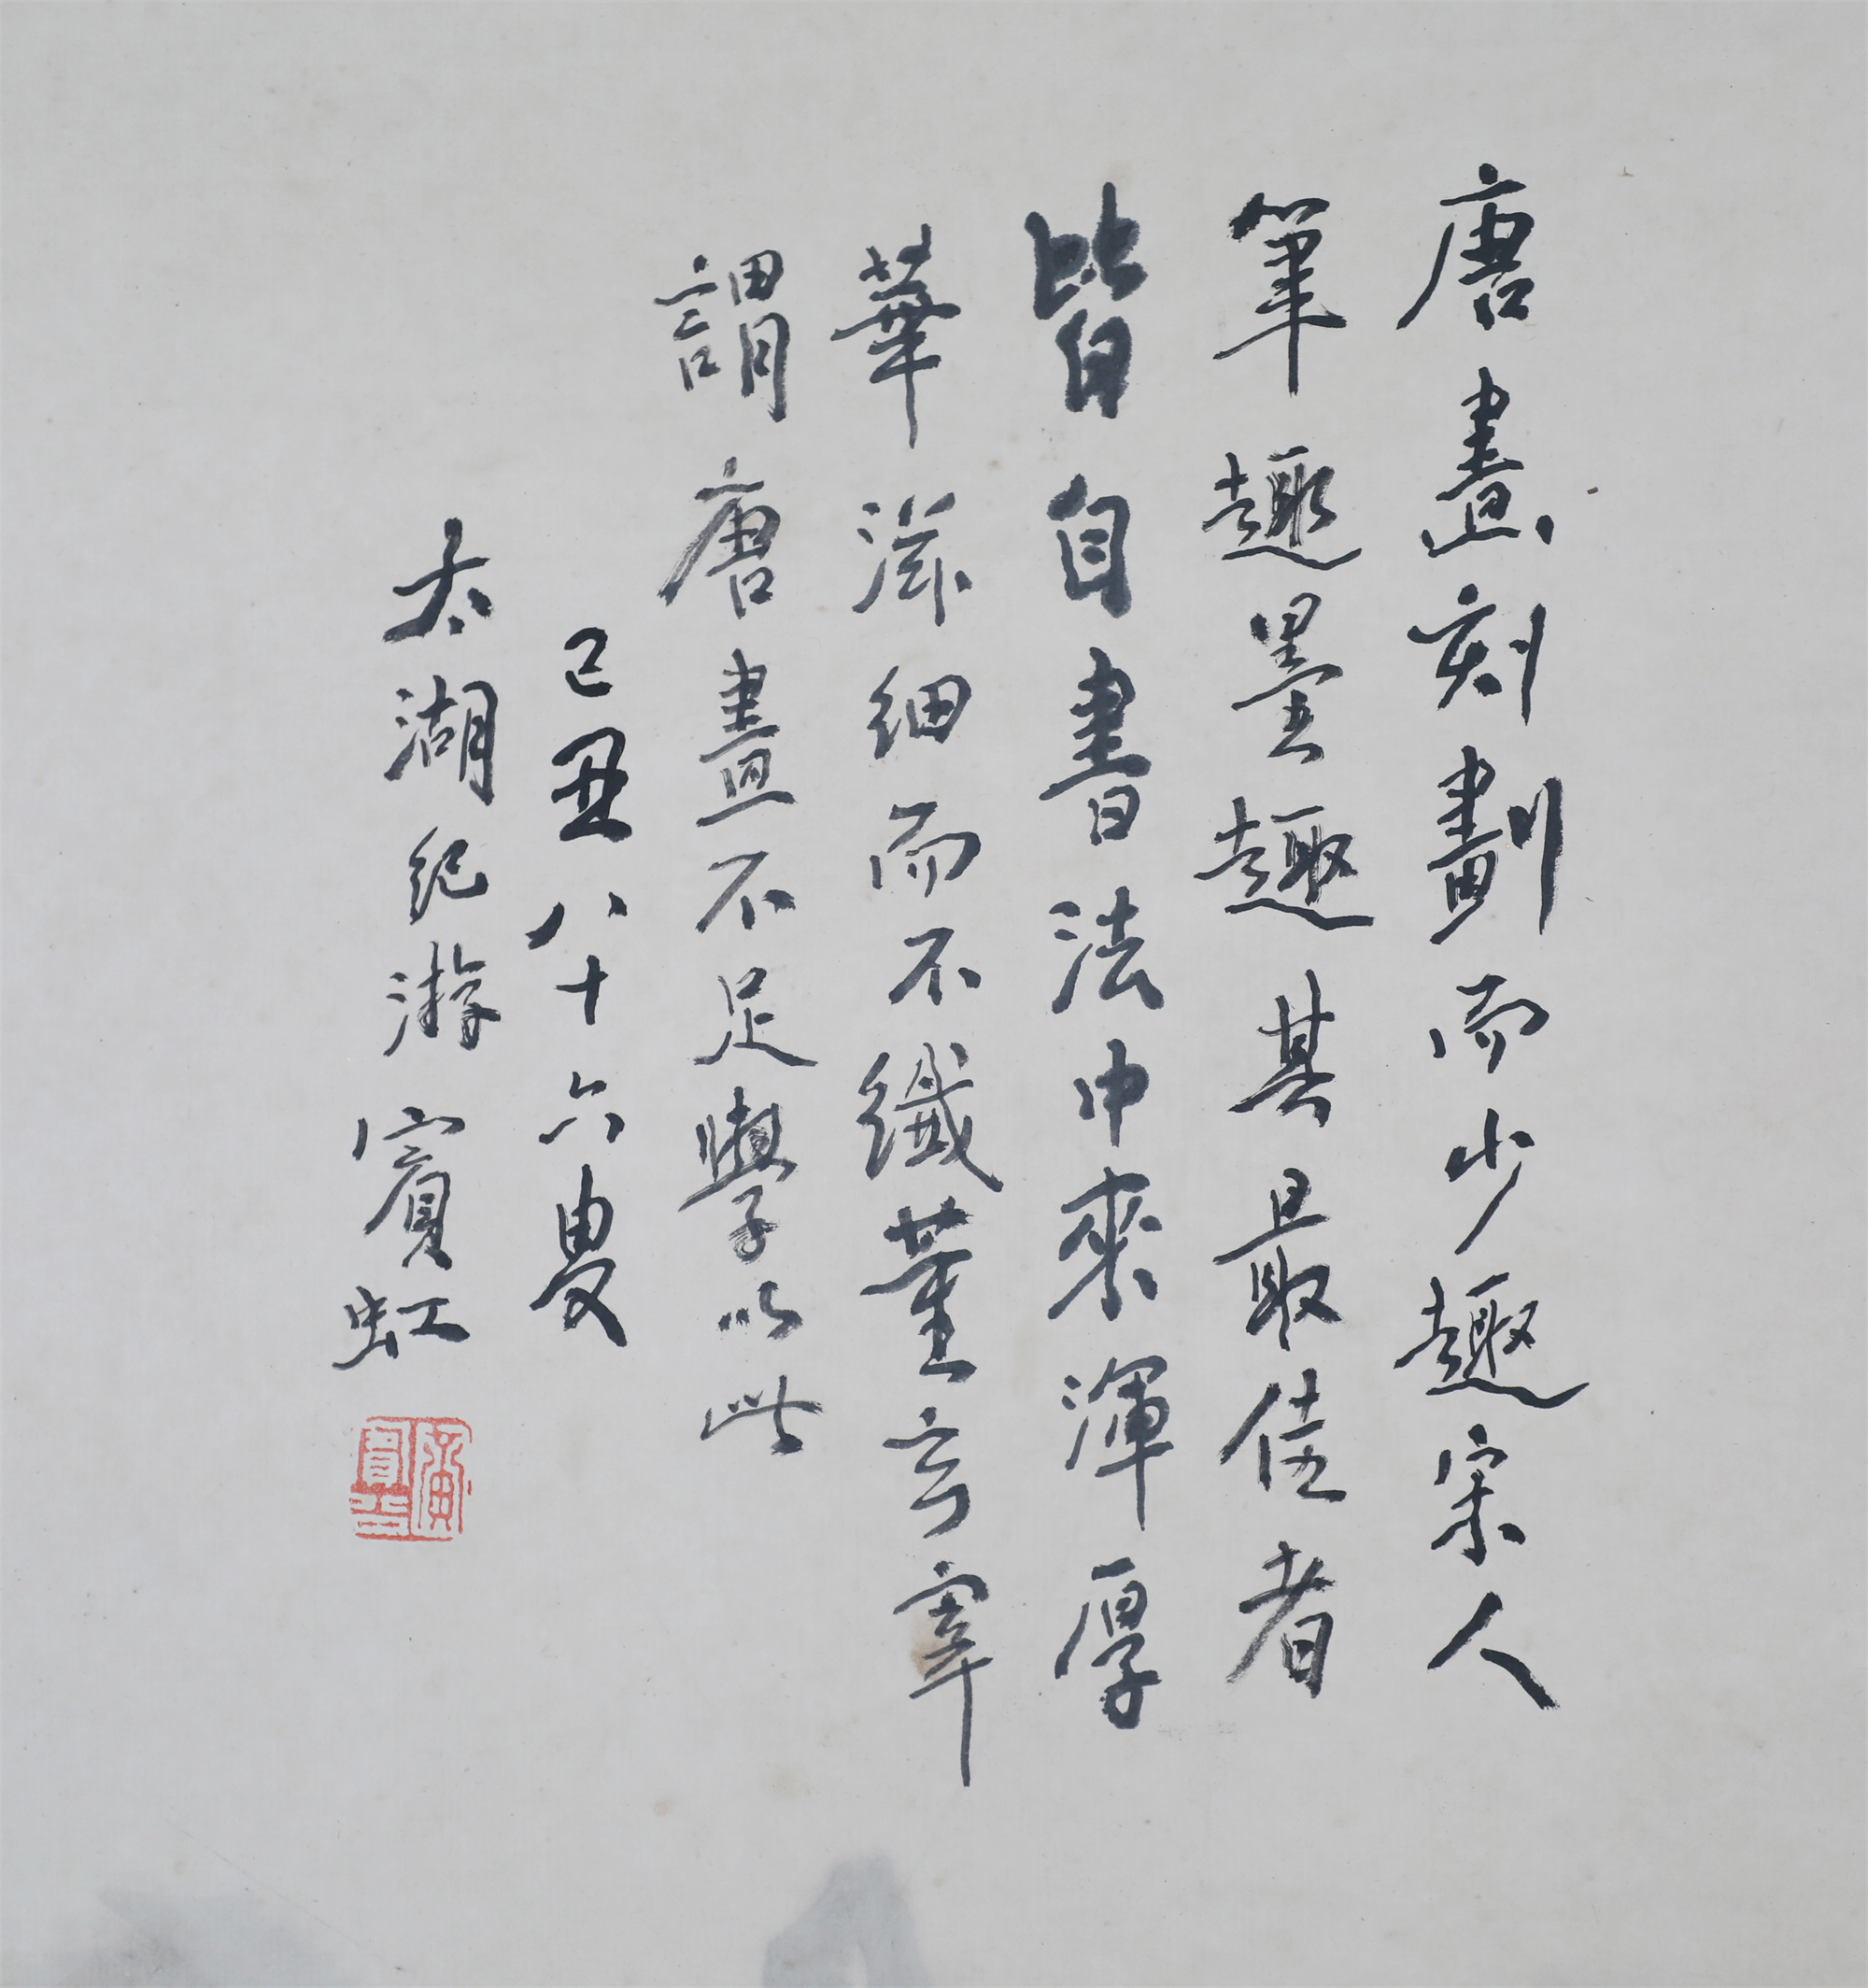 唐畫刻劃而少趣宋人
筆趣墨趣其最佳者
皆自書法中來渾厚
華滋細而不纖董玄宰
謂唐畫不足學以此
己丑八十六叟
太湖紀游 賓虹
黃賓虹